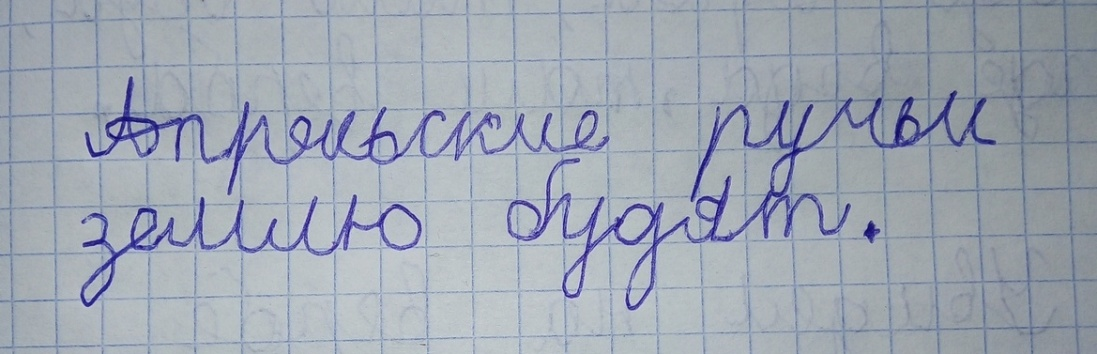 Апрельские ручьи
землю будят.